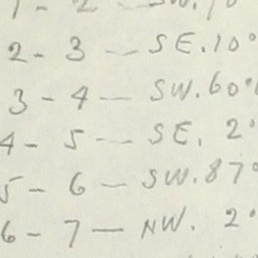 1 - 2 — SW. 1
2 - 3 — SE. 10°
3 - 4 — SW. 60°
4 - 5 — SE. 2°
5 - 6 — SW. 87°
6 - 7 — NW. 2°